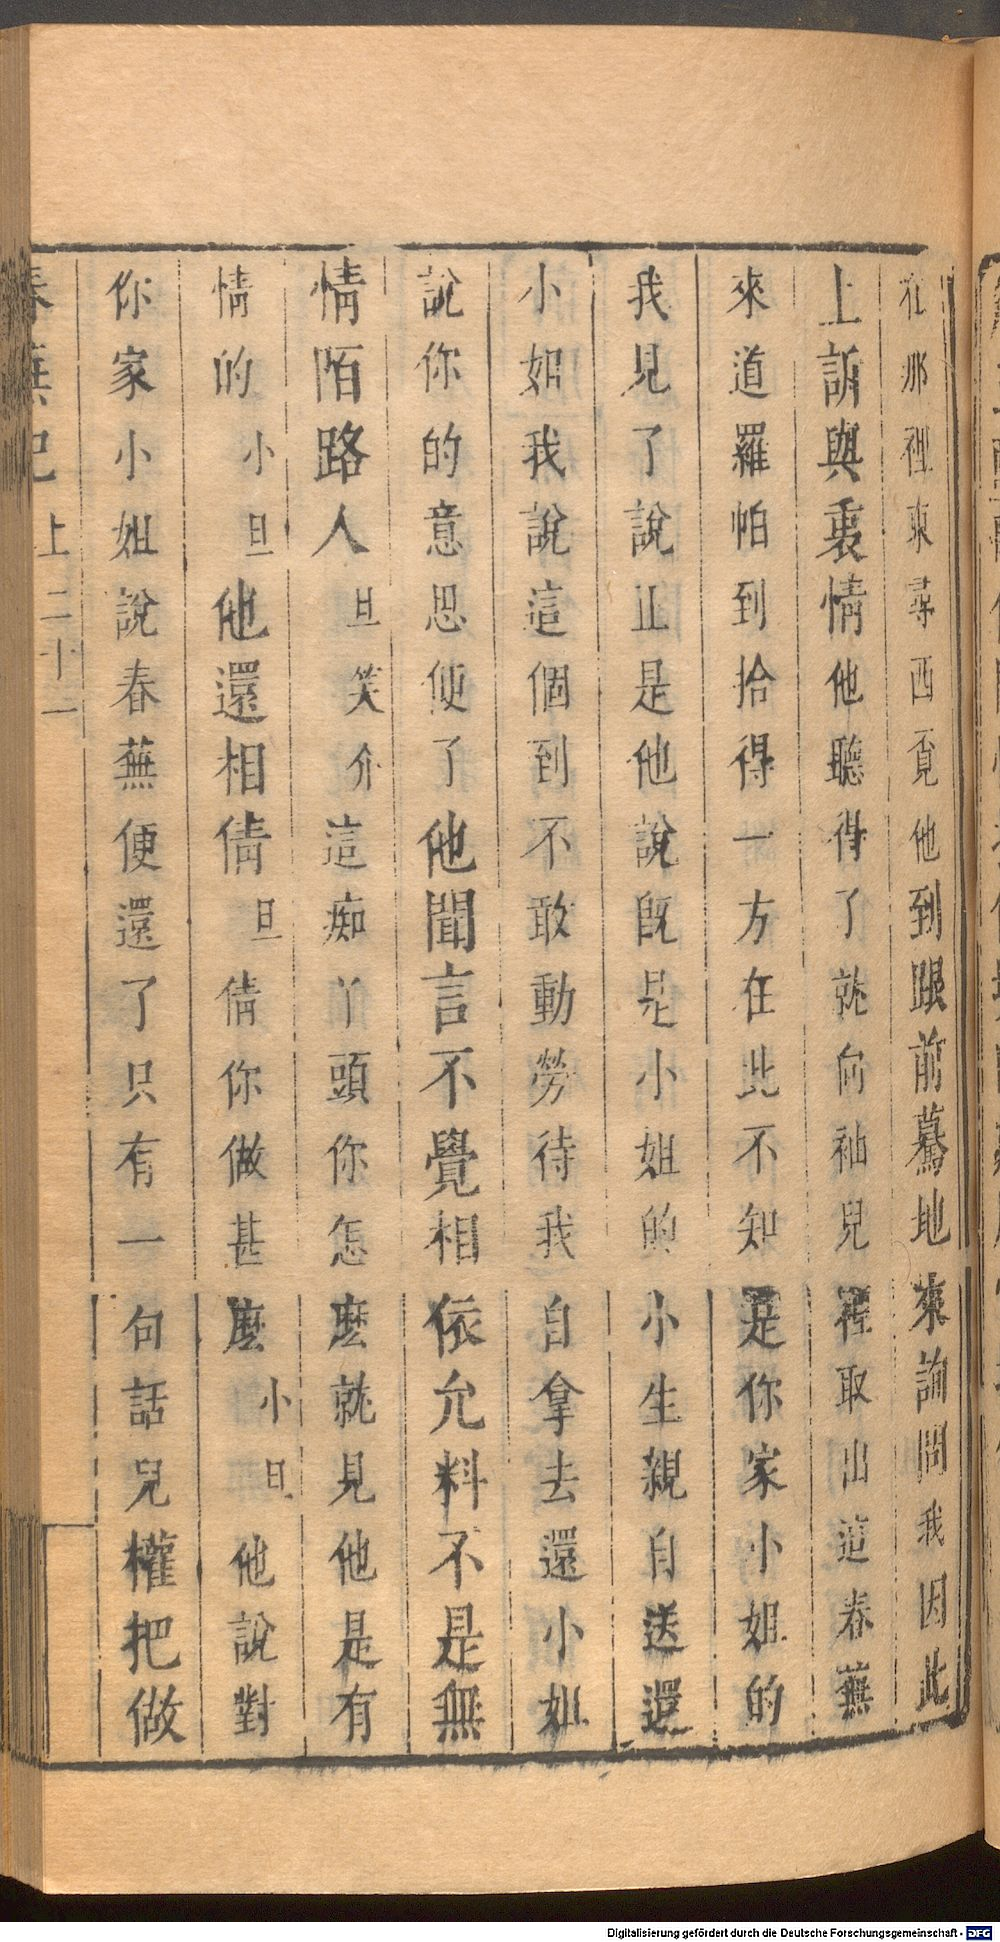 在那裡東尋西覓他到跟前驀地來詢問我因此
上訴與衷情他聽得了就向袖兒裡取出這春蕪
來道羅帕到拾得一方在此不知是你家小姐的
我見了說正是他說既是小姐的小生親自送還
小姐我說這個到不敢動勞待我自拿去還小姐
說你的意思便了他聞言不覺相依允料不是無
情陌路人旦笑介這痴丫頭你怎麽就見他是有
情的小旦他還相倩旦倩你做甚麽小旦他說對
你家小姐說春蕪便還了只有一句話兒權把做
春蕪記 上 二十二
Digitalisierung gefördert durch die Deutsche Forschungsgemeinschaft - DFG